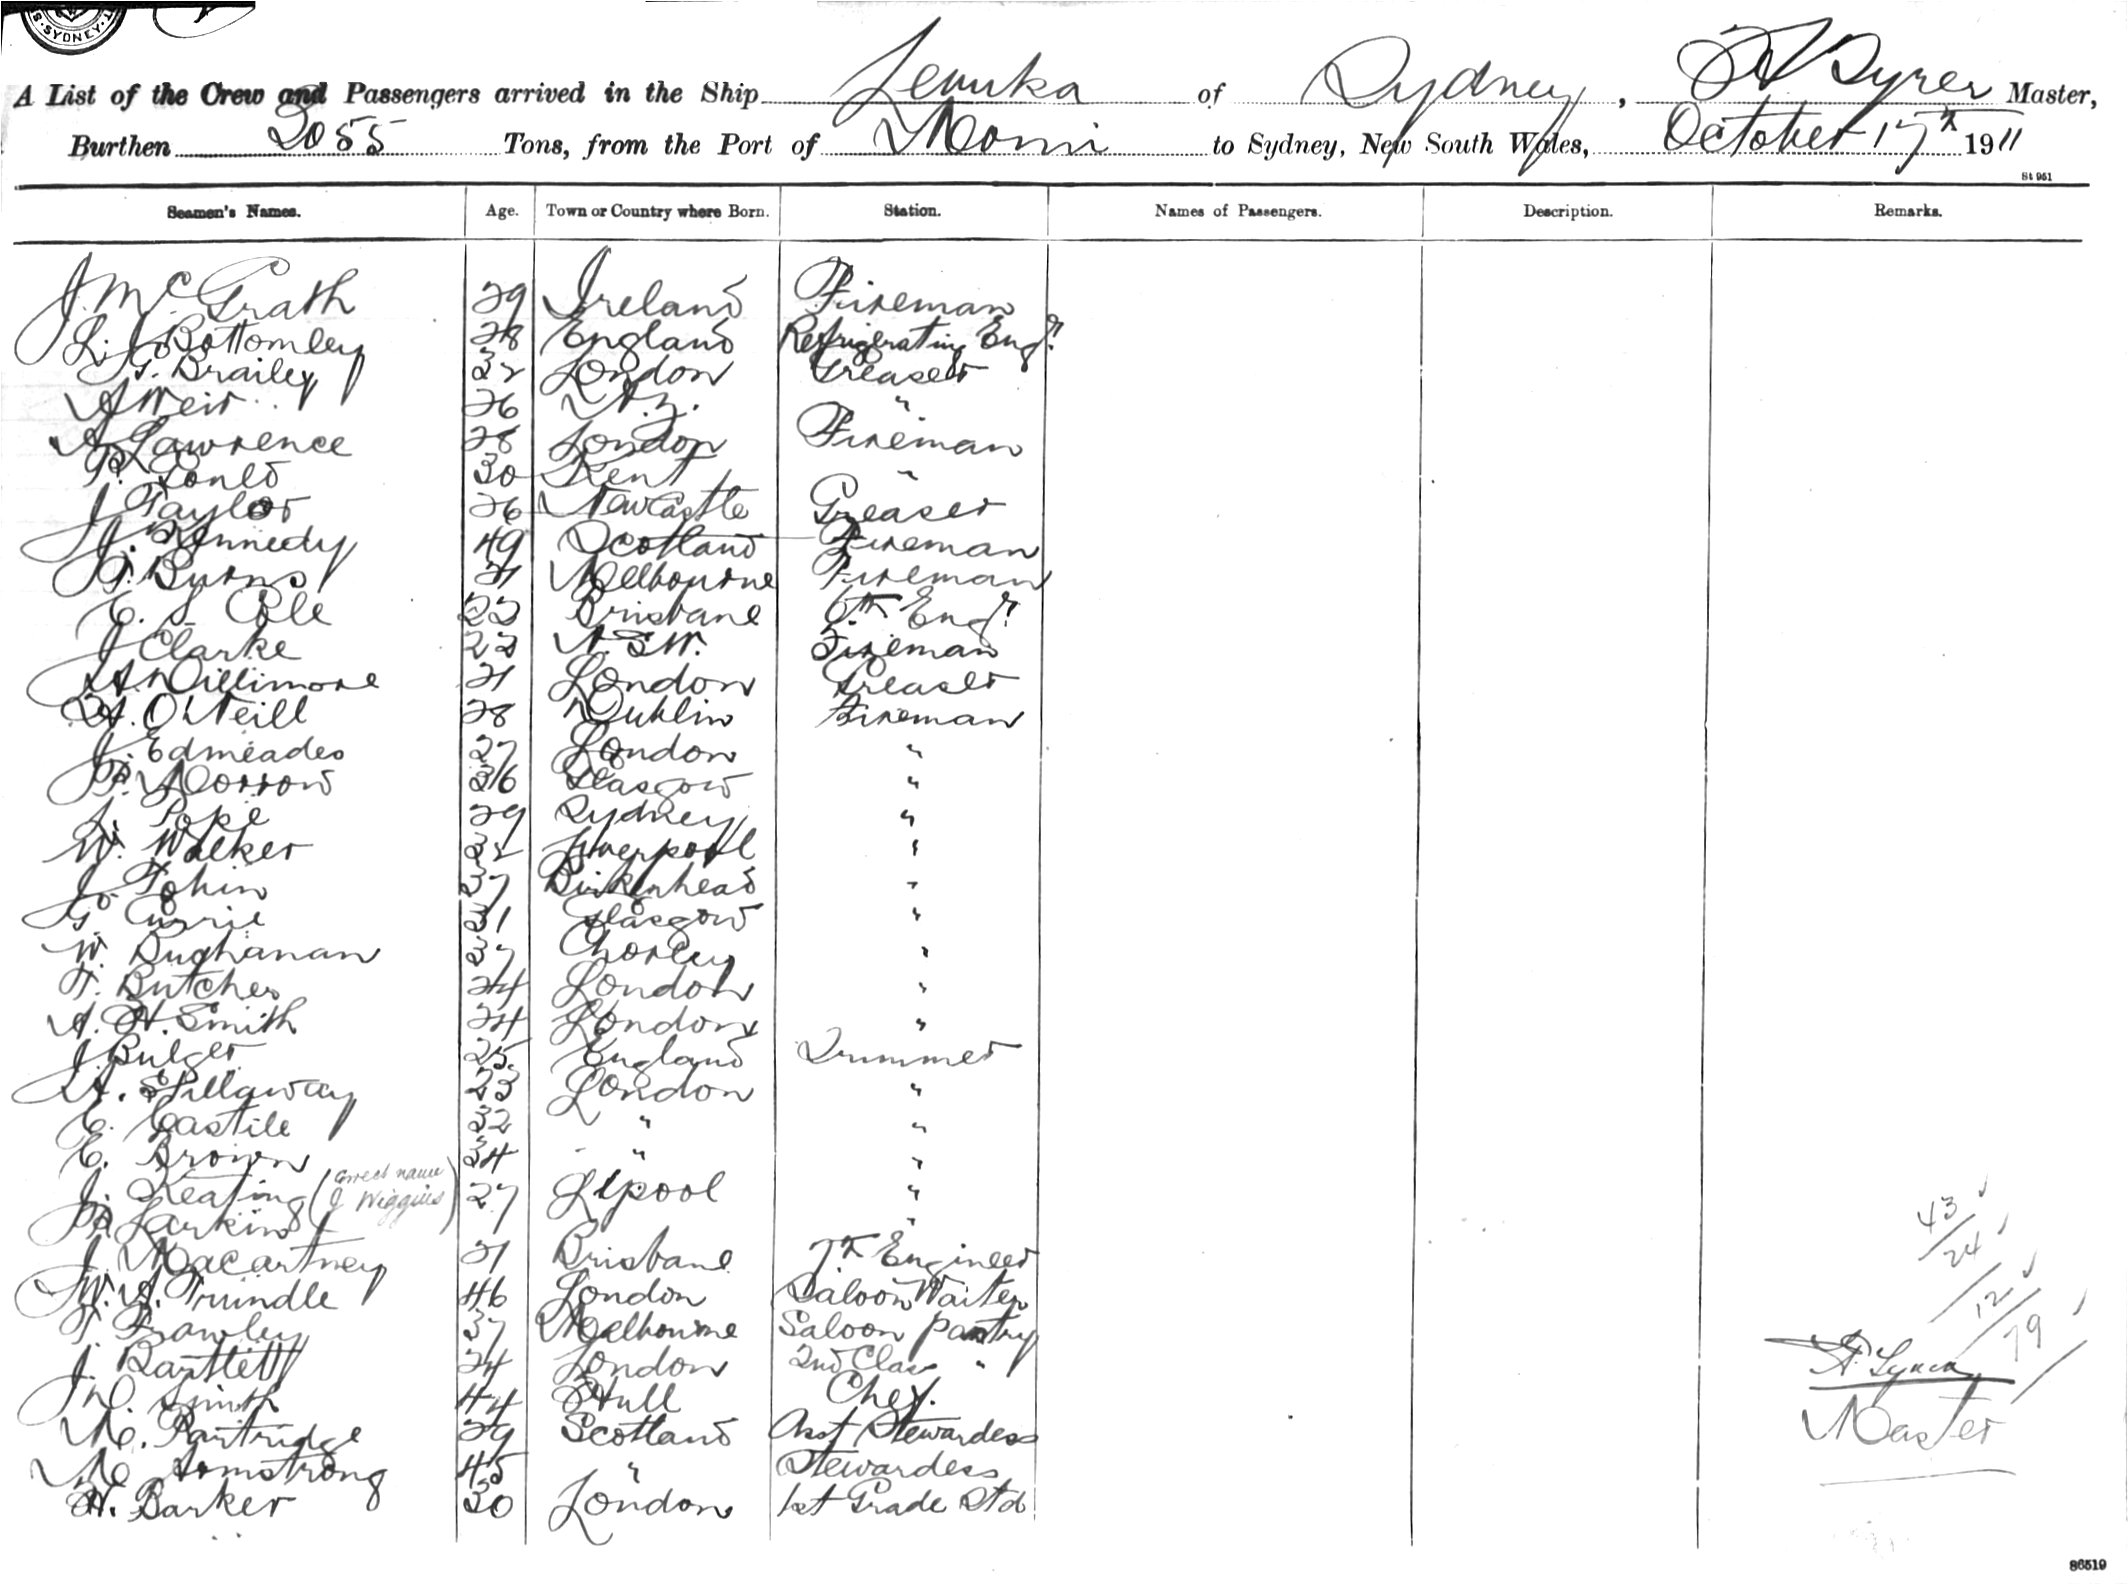 SYDNEY
A List of the Crew and Passengers arrived in the Ship Levuka of Sydney, Tyrer Master,
Burthen 3055 Tons, from the Port of Momi to Sydney, New South Wales, October 17th 1911
St 951
Seamen's Names. Age. Town or Country where Born. Station. Names of Passengers. Description. Remarks.
J. McGrath 29 Ireland Fireman
Bottomley 28 England Refrigerating Engr.
G. Brailey 32 London Greaser
A Weir 26 N.Z. "
A Lawrence 28 London Fireman
30 Kent "
J Taylor 26 Newcastle Greaser
J. Kennedy 49 Scotland Fireman
Burns 21 Melbourne Fireman
E. S. Cole 22 Brisbane 6th Engr.
J Clarke 22 N.S.W. Fireman
Willimore 21 London Greaser
H. O'Neill 28 Dublin Fireman
J. Edmeades 27 London "
Morrow 36 Glasgow "
Pope 29 Sydney "
W. Walker 32 Liverpool "
J. Tohin 37 Birkenhead "
G. Currie 31 Glasgow "
W. Bughanan 37 Chorley "
F. Butcher 24 London "
A. H. Smith 24 London "
J Bulger 25 England Trimmer
A. Sillaway 23 London "
E. Castile 32 " "
E. Brown 34 " "
J. Keating (correct name J Wiggins) 27 L'pool "
Larkins "
J. Macartney 21 Brisbane 7th Engineer
W. A. Trundle 46 London Saloon Waiter
F Frawley 37 Melbourne Saloon Pantry
J. Bartlett 24 London 2nd Class "
D. Smith 44 Hull Chef.
M. Partridge 29 Scotland Asst Stewardess
M Armstrong 45 " Stewardess
H. Barker 30 London 1st Grade Std
43
24
12
79
Master
86519